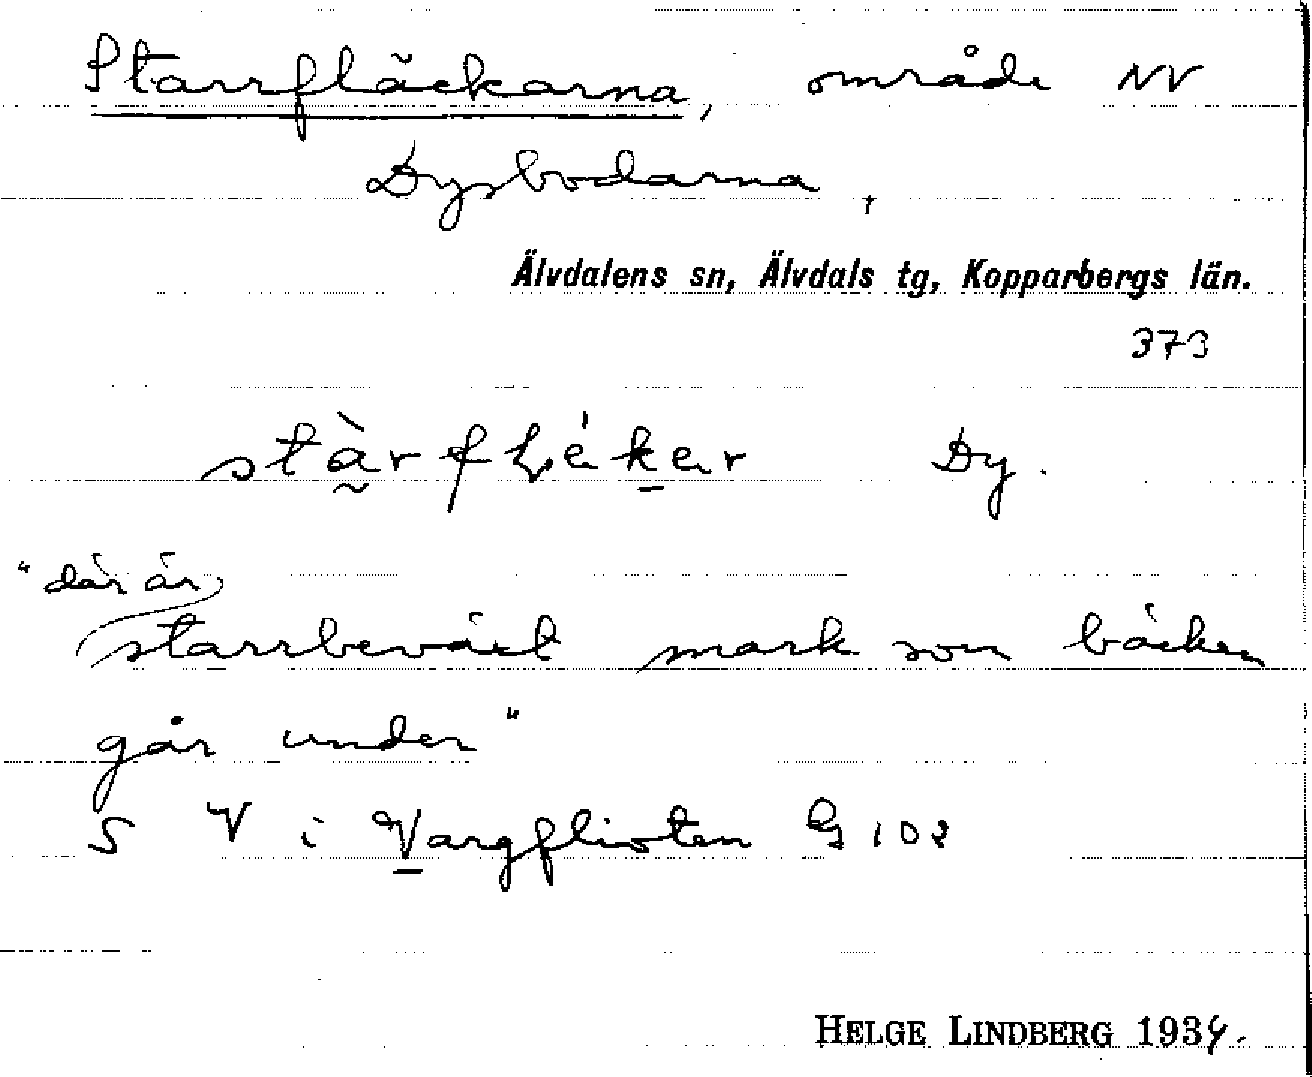 Starrfläckarna, område NV
Dysbodarna,
Älvdalens sn, Älvdals tg, Kopparbergs län.
373
Dy.
"där är
starrbeväxt mark som bäcken
går under"
S V i Vargflioten G 102
HELGE LINDBERG 1934.